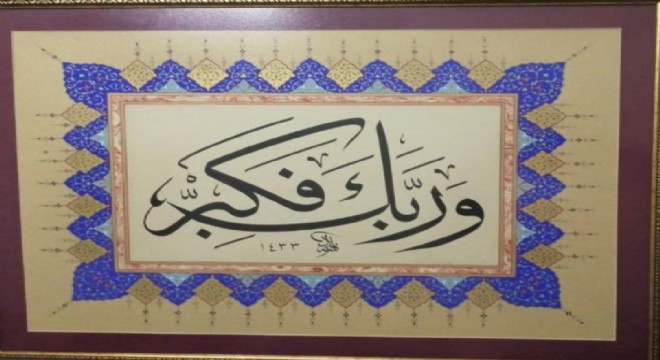 وَرَبَّكَ فَكَبِّرْ
١٤٣٣